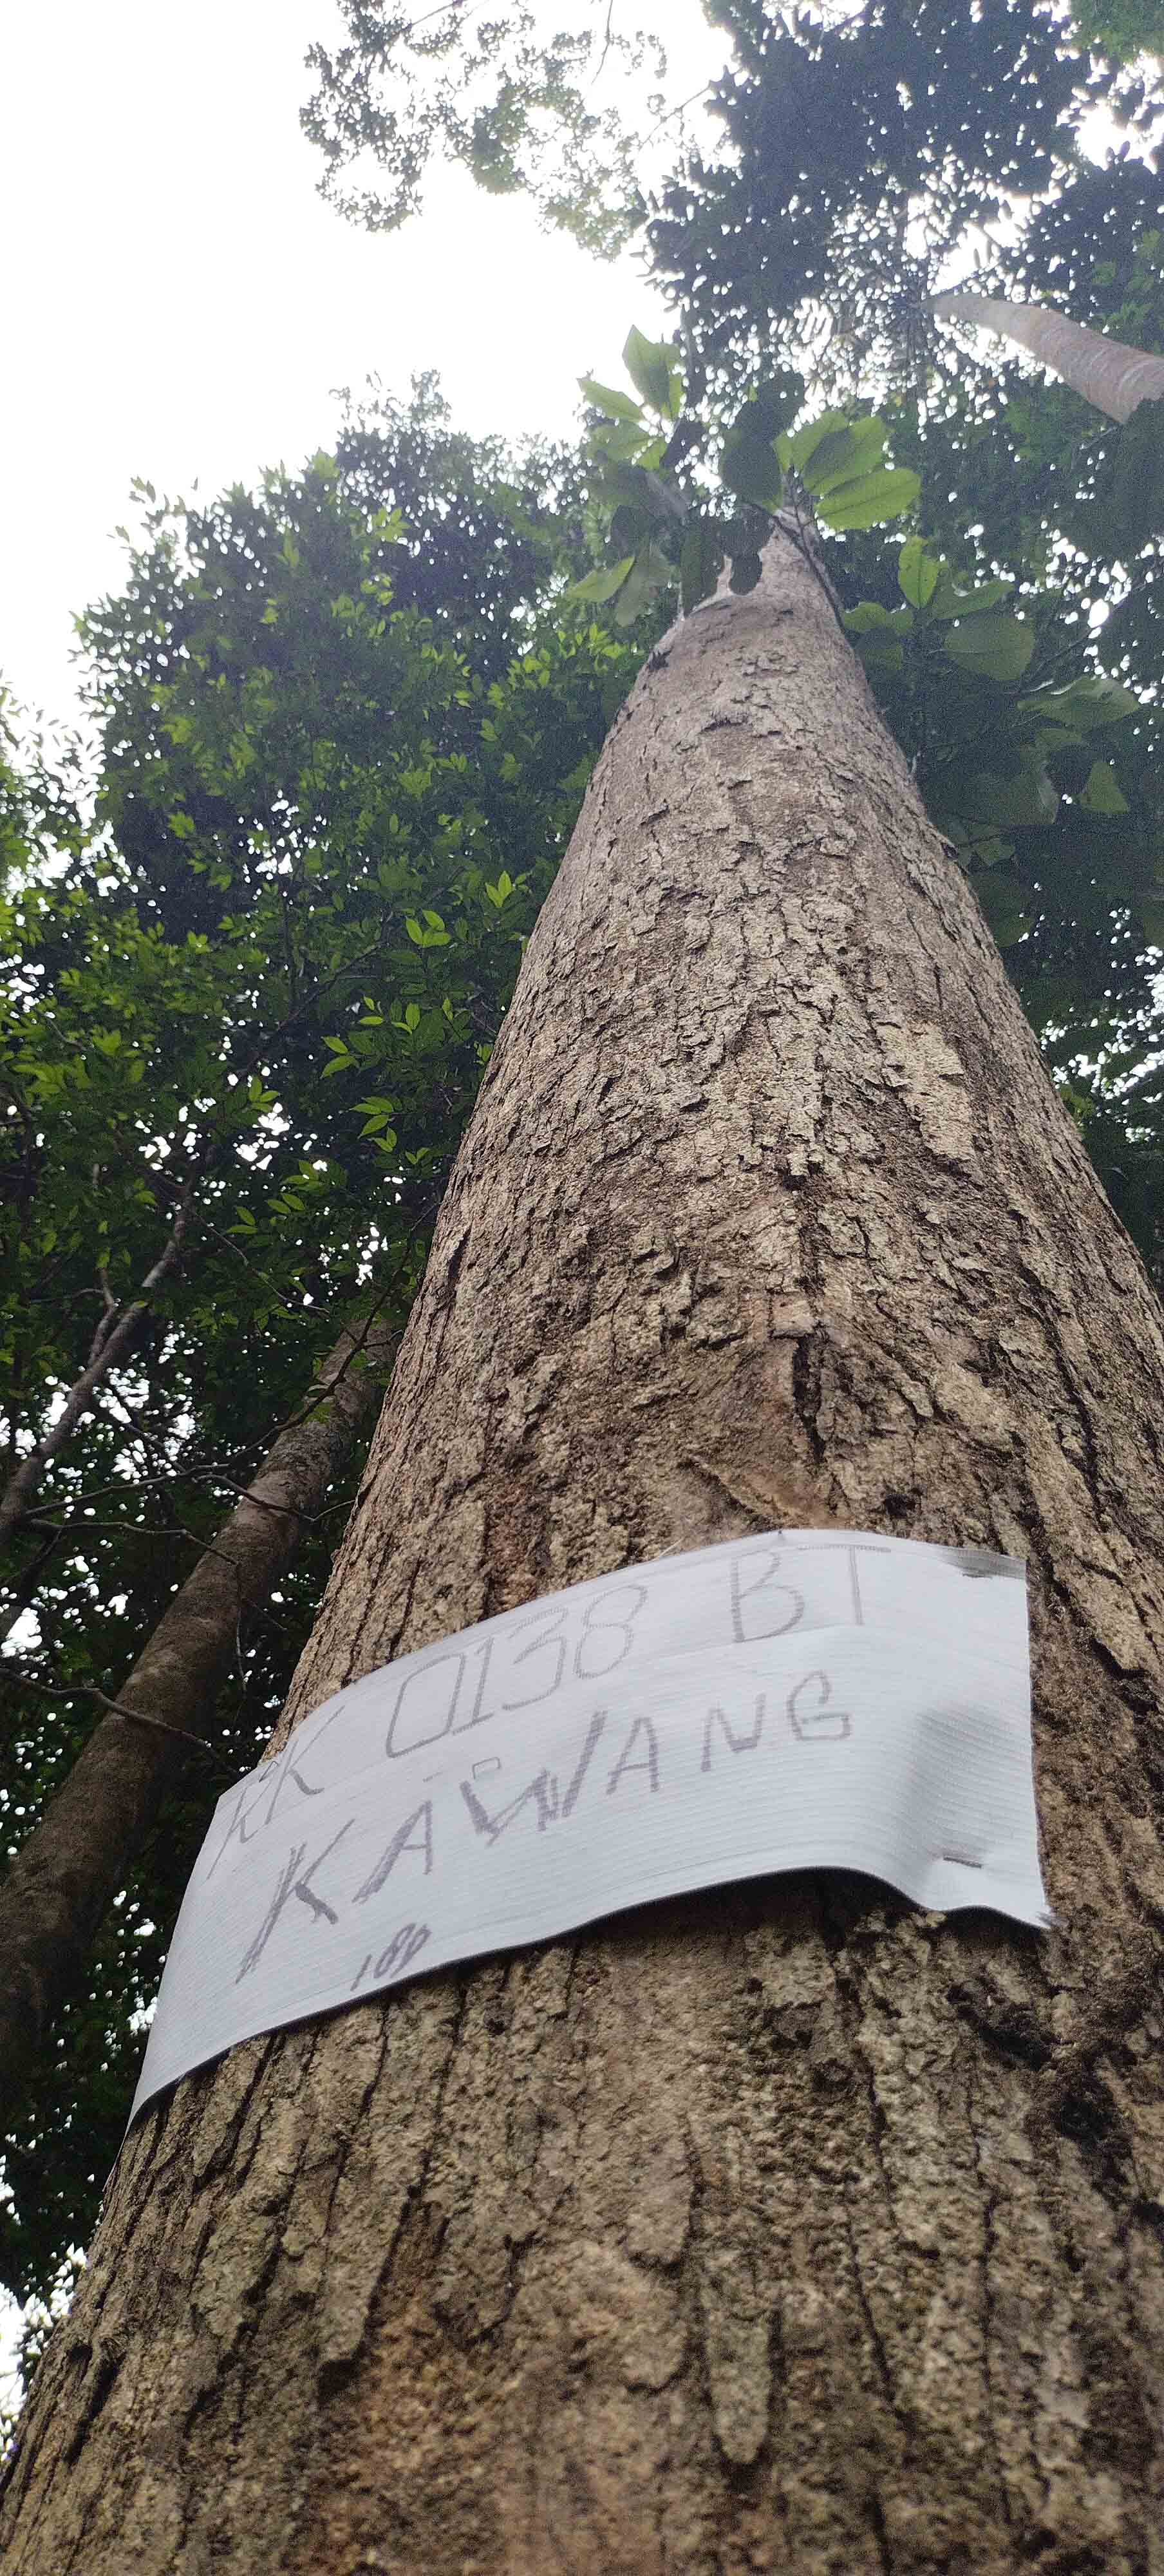 KK 0138 BT
KAWANG
180